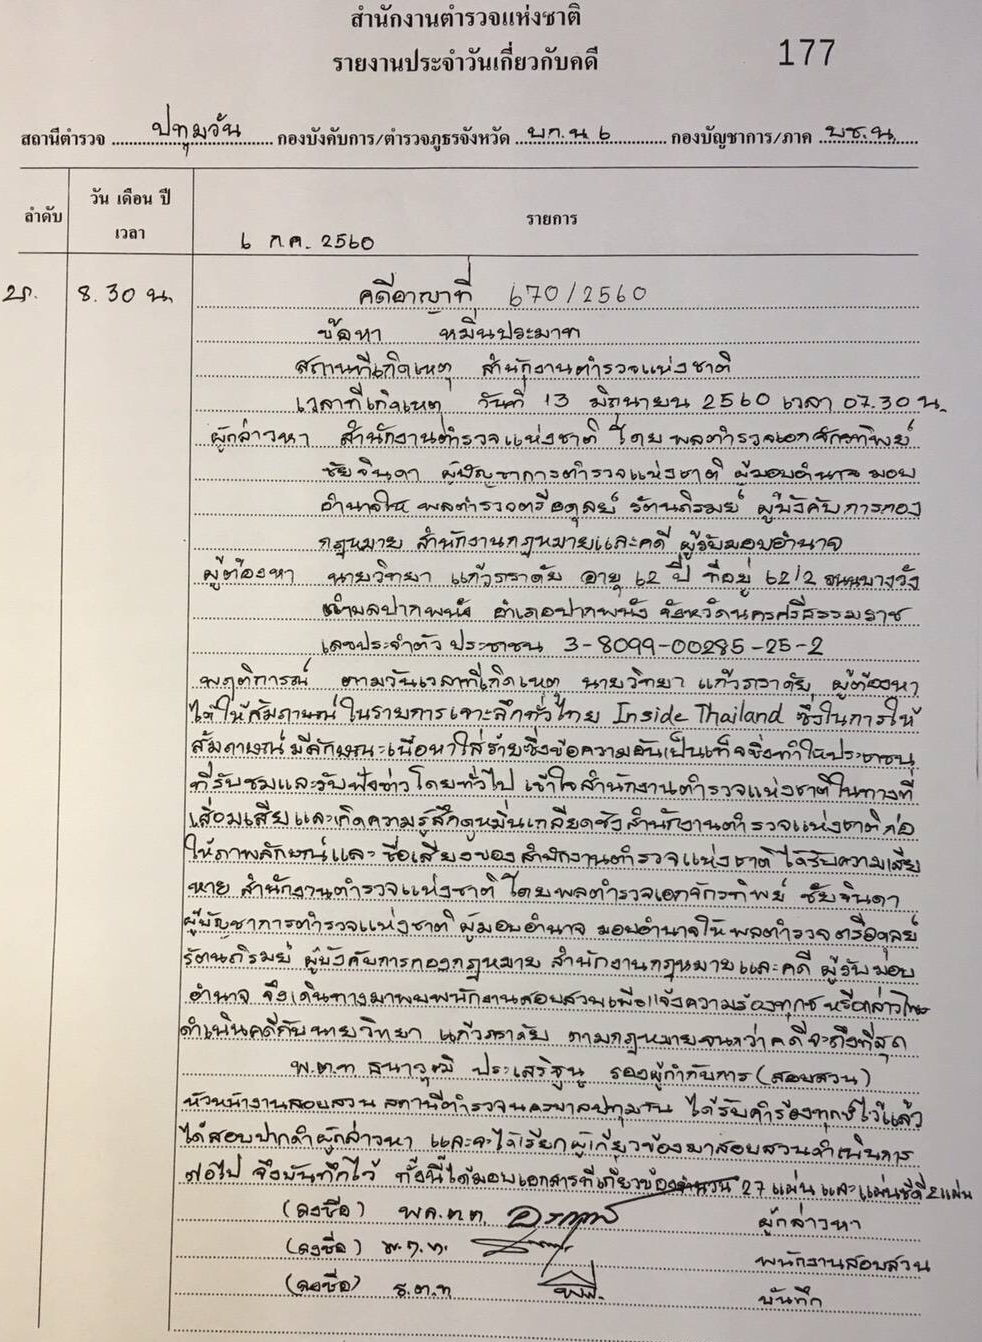 สำนักงานตำรวจแห่งชาติ
รายงานประจำวันเกี่ยวกับคดี
177
สถานีตำรวจ ปทุมวัน กองบังคับการ/ตำรวจภูธรจังหวัด บก.น ๖ กองบัญชาการ/ภาค บช.น.
ลำดับ วัน เดือน ปี เวลา รายการ
๖ ก.ค. 25๖0
8.30 น. คดีอาญาที่ 670/2560
ข้อหา หมิ่นประมาท
สถานที่เกิดเหตุ สำนักงานตำรวจแห่งชาติ
เวลาที่เกิดเหตุ วันที่ 13 มิถุนายน 2560 เวลา 07.30 น.
ผู้กล่าวหา สำนักงานตำรวจแห่งชาติ โดย พลตำรวจเอกจักรทิพย์
ชัยจินดา ผู้บัญชาการตำรวจแห่งชาติ ผู้มอบอำนาจ มอบ
อำนาจให้ พลตำรวจตรีอดุลย์ รัตนภิรมย์ ผู้บังคับการกอง
กฎหมาย สำนักงานกฎหมายและคดี ผู้รับมอบอำนาจ
ผู้ต้องหา นายวิทยา แก้วภราดัย อายุ 62 ปี ที่อยู่ 62/2 ถนนบางวัง
ตำบลปากพนัง อำเภอปากพนัง จังหวัดนครศรีธรรมราช
เลขประจำตัวประชาชน 3-8099-00285-25-2
พฤติการณ์ ตามวันเวลาที่เกิดเหตุ นายวิทยา แก้วภราดัย ผู้ต้องหา
ได้ให้สัมภาษณ์ในรายการเจาะลึกทั่วไทย Inside Thailand ซึ่งในการให้
สัมภาษณ์มีลักษณะเนื้อหาใส่ร้ายซึ่งข้อความอันเป็นเท็จซึ่งทำให้ประชาชน
ที่รับชมและรับฟังข่าวโดยทั่วไป เข้าใจสำนักงานตำรวจแห่งชาติในทางที่
เสื่อมเสียและเกิดความรู้สึกดูหมิ่นเกลียดชังสำนักงานตำรวจแห่งชาติ ก่อ
ให้ภาพลักษณ์และชื่อเสียงของสำนักงานตำรวจแห่งชาติ ได้รับความเสีย
หาย สำนักงานตำรวจแห่งชาติ โดยพลตำรวจเอกจักรทิพย์ ชัยจินดา
ผู้บัญชาการตำรวจแห่งชาติ ผู้มอบอำนาจ มอบอำนาจให้ พลตำรวจตรีอดุลย์
รัตนภิรมย์ ผู้บังคับการกองกฎหมาย สำนักงานกฎหมายและคดี ผู้รับมอบ
อำนาจ จึงเดินทางมาพบพนักงานสอบสวนเพื่อแจ้งความร้องทุกข์ หรือกล่าวโทษ
ดำเนินคดีกับนายวิทยา แก้วภราดัย ตามกฎหมายจนกว่าคดีจะถึงที่สุด
พ.ต.ท ธนาวุฒิ ประเสริฐ รองผู้กำกับการ (สอบสวน)
หัวหน้างานสอบสวน สถานีตำรวจนครบาลปทุมวัน ได้รับคำร้องทุกข์ไว้แล้ว
ได้สอบปากคำผู้กล่าวหา และจะได้เรียกผู้เกี่ยวข้องมาสอบสวนดำเนินการ
ต่อไป จึงบันทึกไว้ ทั้งนี้ได้มอบเอกสารที่เกี่ยวข้องจำนวน 27 แผ่น และแผ่นซีดี 2 แผ่น
(ลงชื่อ) พล.ต.ต. ผู้กล่าวหา
(ลงชื่อ) พ.ต.ท. พนักงานสอบสวน
(ลงชื่อ) ร.ต.ท บันทึก